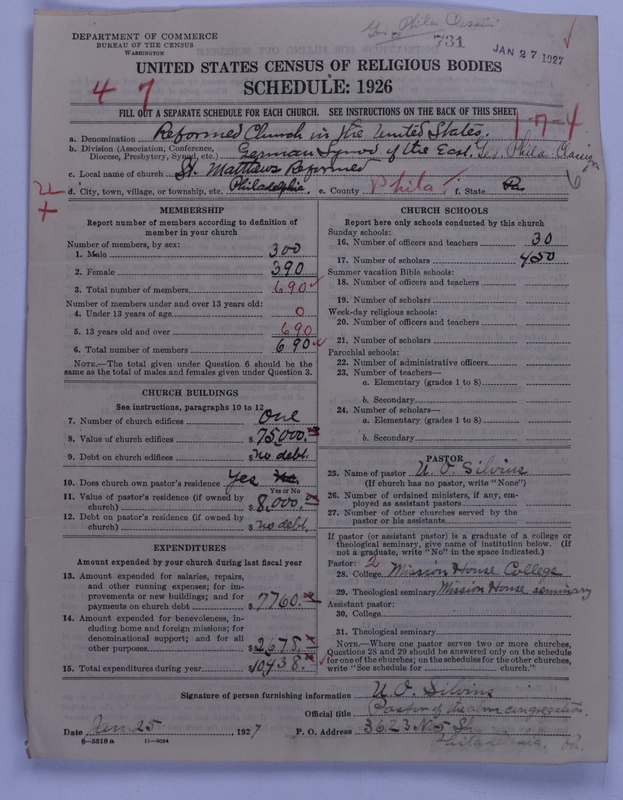 Phila Classis
731
JAN 27 1927
DEPARTMENT OF COMMERCE
BUREAU OF THE CENSUS
WASHINGTON
UNITED STATES CENSUS OF RELIGIOUS BODIES
SCHEDULE: 1926
4 7
FILL OUT A SEPARATE SCHEDULE FOR EACH CHURCH. SEE INSTRUCTIONS ON THE BACK OF THIS SHEET
1-7-4
a. Denomination Reformed Church in the United States.
b. Division (Association, Conference, Diocese, Presbytery, Synod, etc.) German Synod of the East. Ger. Phila. Classis
6
c. Local name of church St. Matthews Reformed
d. City, town, village, or township, etc. Philadelphia e. County Phila f. State Pa
MEMBERSHIP
Report number of members according to definition of
member in your church
Number of members, by sex:
1. Male 300
2. Female 390
3. Total number of members 690
Number of members under and over 13 years old:
4. Under 13 years of age 0
5. 13 years old and over 690
6. Total number of members 690
NOTE.—The total given under Question 6 should be the
same as the total of males and females given under Question 3.
CHURCH BUILDINGS
See instructions, paragraphs 10 to 12
7. Number of church edifices one
8. Value of church edifices $75,000.
9. Debt on church edifices $no debt.
10. Does church own pastor's residence? Yes No.
Yes or No
11. Value of pastor's residence (if owned by
church) $8,000.
12. Debt on pastor's residence (if owned by
church) $no debt.
EXPENDITURES
Amount expended by your church during last fiscal year
13. Amount expended for salaries, repairs,
and other running expenses; for im-
provements or new buildings; and for
payments on church debt $7760.
14. Amount expended for benevolences, in-
cluding home and foreign missions; for
denominational support; and for all
other purposes $2678.
15. Total expenditures during year $10438.
CHURCH SCHOOLS
Report here only schools conducted by this church
Sunday schools:
16. Number of officers and teachers 30
17. Number of scholars 450
Summer vacation Bible schools:
18. Number of officers and teachers
19. Number of scholars
Week-day religious schools:
20. Number of officers and teachers
21. Number of scholars
Parochial schools:
22. Number of administrative officers
23. Number of teachers—
a. Elementary (grades 1 to 8)
b. Secondary
24. Number of scholars—
a. Elementary (grades 1 to 8)
b. Secondary
PASTOR
25. Name of pastor U. O. Silvius
(If church has no pastor, write "None")
26. Number of ordained ministers, if any, em-
ployed as assistant pastors
27. Number of other churches served by the
pastor or his assistants
If pastor (or assistant pastor) is a graduate of a college or
theological seminary, give name of institution below. (If
not a graduate, write "No" in the space indicated.)
Pastor: 2
28. College Mission House College
29. Theological seminary Mission House seminary
Assistant pastor:
30. College
31. Theological seminary
NOTE.—Where one pastor serves two or more churches,
Questions 28 and 29 should be answered only on the schedule
for one of the churches; on the schedules for the other churches,
write "See schedule for church."
Signature of person furnishing information U. O. Silvius
Official title Pastor of the above congregation.
Date Jan 25, 1927 P. O. Address 3623 N. 5 St.
8—5518 a 11—9084 Philadelphia. Pa.